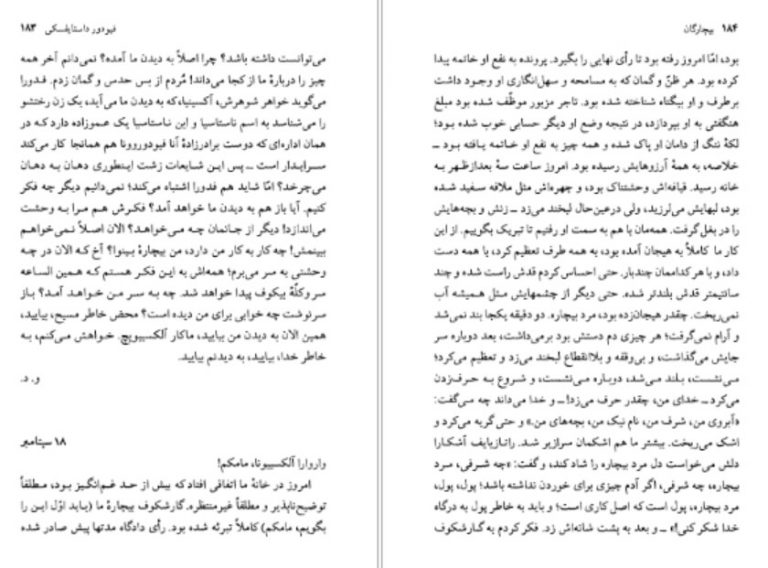 فیودور داستایفسکی ۱۸۳
می‌توانست داشته باشد؟ چرا اصلاً به دیدن ما آمده؟ نمی‌دانم آخر همه
چیز را دربارهٔ ما از کجا می‌داند! مُردم از بس حدس و گمان زدم. فدورا
می‌گوید خواهر شوهرش، آکسینیا،که به دیدن ما می‌آید، یک زن رختشو
را می‌شناسد به اسم ناستاسیا و این ناستاسیا یک عموزاده دارد که در
همان اداره‌ای که دوست برادرزادهٔ آنا فیودوروونا هم همانجا کار می‌کند
سرایدار است ــ پس این شایعات زشت اینطوری دهان به دهان
می‌چرخد؟ امّا شاید هم فدورا اشتباه می‌کند؛ نمی‌دانیم دیگر چه فکر
کنیم. آیا باز هم به دیدن ما خواهد آمد؟ فکرش هم مرا به وحشت
می‌اندازد! دیگر از جانمان چه می‌خواهد؟ الان اصلاً نمی‌خواهم
ببینمش! چه کار به کار من دارد، من بیچارهٔ بینوا؟ آخ که الان در چه
وحشتی به سر می‌برم؛ همه‌اش به این فکر هستم که همین الساعه
سروکلّهٔ بیکوف پیدا خواهد شد. چه به سر من خواهد آمد؟ باز
سرنوشت چه خوابی برای من دیده است؟ محض خاطر مسیح، بیایید،
همین الان به دیدن من بیایید، ماکار آلکسییویچ. خواهش می‌کنم، به
خاطر خدا، بیایید، به دیدنم بیایید.
و. د.
۱۸ سپتامبر
واروارا آلکسییونا، مامکم!
امروز در خانهٔ ما اتفاقی افتادکه بیش از حد غم‌انگیز بود، مطلقاً
توضیح‌ناپذیر و مطلقاً غیرمنتظره. گارشکوف بیچارهٔ ما (باید اوّل این را
بگویم، مامکم) کاملاً تبرئه شده بود. رأی دادگاه مدتها پیش صادر شده
۱۸۴ بیچارگان
بود، امّا امروز رفته بود تا رأی نهایی را بگیرد. پرونده به نفع او خاتمه پیدا
کرده بود. هر ظنّ و گمان که به مسامحه و سهل‌انگاری او وجود داشت
برطرف و او بیگناه شناخته شده بود. تاجر مزبور موظّف شده بود مبلغ
هنگفتی به او بپردازد، در نتیجه وضع او دیگر حسابی خوب شده بود؛
لکهٔ ننگ از دامان او پاک شده و همه چیز به نفع او خاتمه یافته بود ــ
خلاصه، به همهٔ آرزوهایش رسیده بود. امروز ساعت سهٔ بعدازظهر به
خانه رسید. قیافه‌اش وحشتناک بود، و چهره‌اش مثل ملافه سفید شده
بود، لبهایش می‌لرزید، ولی درعین‌حال لبخند می‌زد ــ زنش و بچه‌هایش
را در بغل گرفت. همه‌مان با هم به سمت او رفتیم تا تبریک بگوییم. از این
کار ما کاملاً به هیجان آمده بود، به همه طرف تعظیم کرد، با همه دست
داد، و با هر کداممان چندبار. حتی احساس کردم قدش راست شده و چند
سانتیمتر قدش بلندتر شده. حتی دیگر از چشمهایش مثل همیشه آب
نمی‌ریخت. چقدر هیجان‌زده بود، مرد بیچاره. دو دقیقه یکجا بند نمی‌شد
و آرام نمی‌گرفت؛ هر چیزی دم دستش بود برمی‌داشت، بعد دوباره سر
جایش می‌گذاشت، و بی‌وقفه و بلاانقطاع لبخند می‌زد و تعظیم می‌کرد؛
می‌نشست، بلند می‌شد، دوباره می‌نشست، و شروع به حرف‌زدن
می‌کرد ــ خدای من، چقدر حرف می‌زد! ــ و خدا می‌داند چه می‌گفت:
«آبروی من، شرف من، نام نیک من، بچه‌های من.» و حتی گریه می‌کرد و
اشک می‌ریخت. بیشتر ما هم اشکمان سرازیر شد. راتازیایف آشکارا
دلش می‌خواست دل مرد بیچاره را شاد کند، و گفت: «چه شرفی، مرد
بیچاره، چه شرفی، اگر آدم چیزی برای خوردن نداشته باشد؛ پول، پول،
مرد بیچاره، پول است که اصل کاری است؛ و باید به خاطر پول به درگاه
خدا شکر کنی!» ــ و بعد به پشت شانه‌اش زد. فکر کردم به گارشکوف